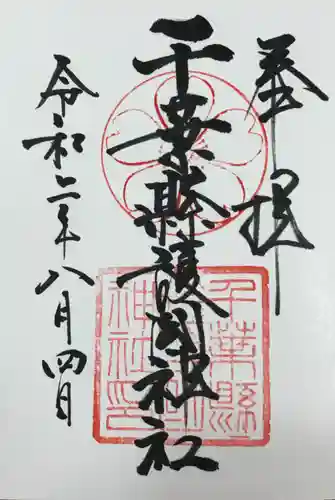 奉拝
千葉縣護國神社
令和二年八月四日
千葉縣
護國
神社印